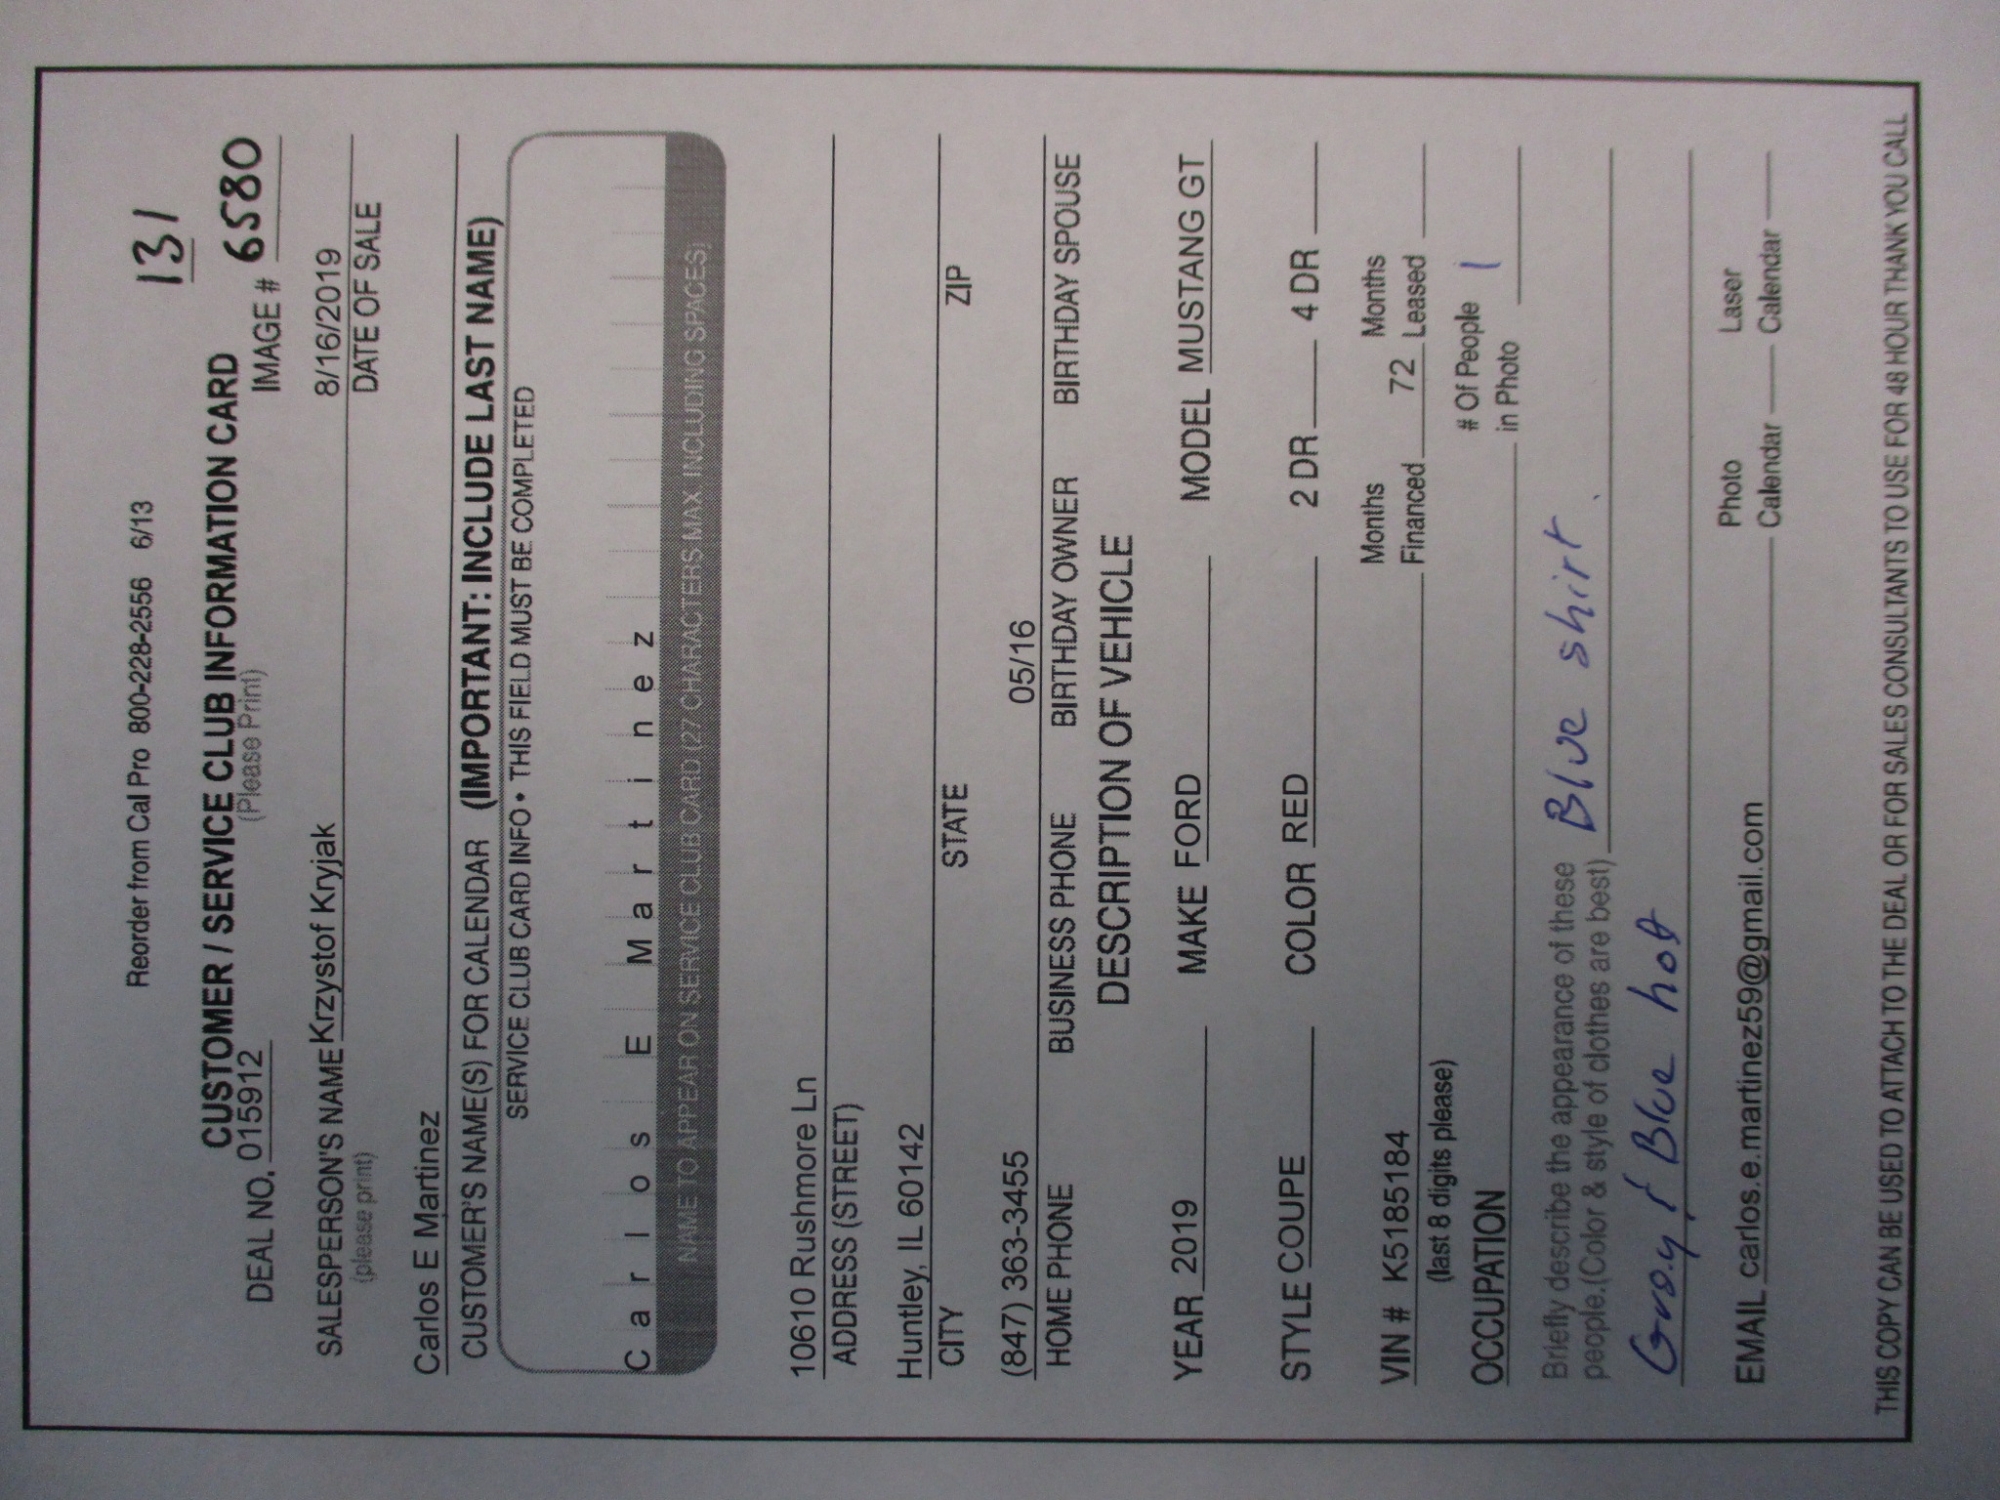 131
Reorder from Cal Pro 800-228-2556 6/13
CUSTOMER / SERVICE CLUB INFORMATION CARD
DEAL NO. 015912 (Please Print) IMAGE # 6580
SALESPERSON'S NAME Krzystof Kryjak 8/16/2019
(please print) DATE OF SALE
Carlos E Martinez
CUSTOMER'S NAME(S) FOR CALENDAR (IMPORTANT: INCLUDE LAST NAME)
SERVICE CLUB CARD INFO • THIS FIELD MUST BE COMPLETED
Carlos E Martinez
NAME TO APPEAR ON SERVICE CLUB CARD (27 CHARACTERS MAX. INCLUDING SPACES)
10610 Rushmore Ln
ADDRESS (STREET)
Huntley, IL 60142
CITY STATE ZIP
(847) 363-3455 05/16
HOME PHONE BUSINESS PHONE BIRTHDAY OWNER BIRTHDAY SPOUSE
DESCRIPTION OF VEHICLE
YEAR 2019 MAKE FORD MODEL MUSTANG GT
STYLE COUPE COLOR RED 2 DR 4 DR
Months Months
VIN # K5185184 Financed 72 Leased
(last 8 digits please) # Of People 1
OCCUPATION in Photo
Briefly describe the appearance of these Blue shirt
people.(Color & style of clothes are best)
Gray & Blue hat
Photo Laser
EMAIL carlos.e.martinez59@gmail.com Calendar Calendar
THIS COPY CAN BE USED TO ATTACH TO THE DEAL OR FOR SALES CONSULTANTS TO USE FOR 48 HOUR THANK YOU CALL